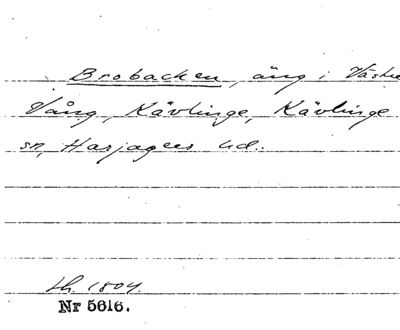 Brobacken, äng i Västre
Vång, Kävlinge, Kävlinge
sn, Harjagers hd.
Lh. 1804.
Nr 5616.